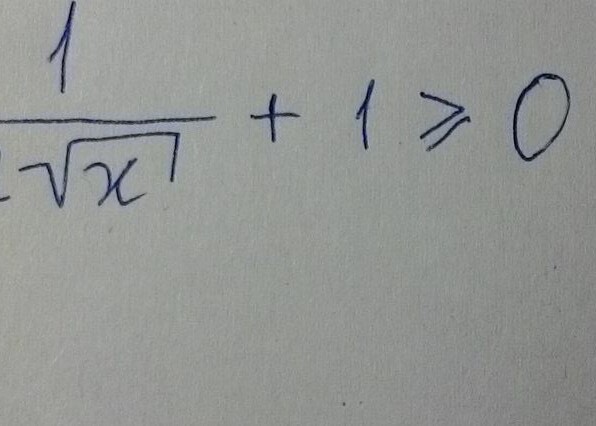 1/√x + 1 ⩾ 0